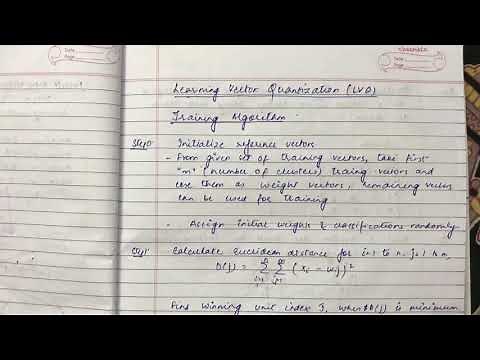 Date
Page
Saathi
Date
Page
Learning Vector Quantization (LVQ)
Training Algorithm
Step0: Initialize reference vectors
- From given set of training vectors, take first
"m" (number of clusters) traing vectors and
use them as weight vectors, remaining vectors
can be used for training
- Assign initial weights & classifications randomly
Step1: Calculate Euclidean distance for i=1 to n, j=1 to m,
D(j) = Σ Σ (xi - wij)²
Find winning unit index J, when D(J) is minimum